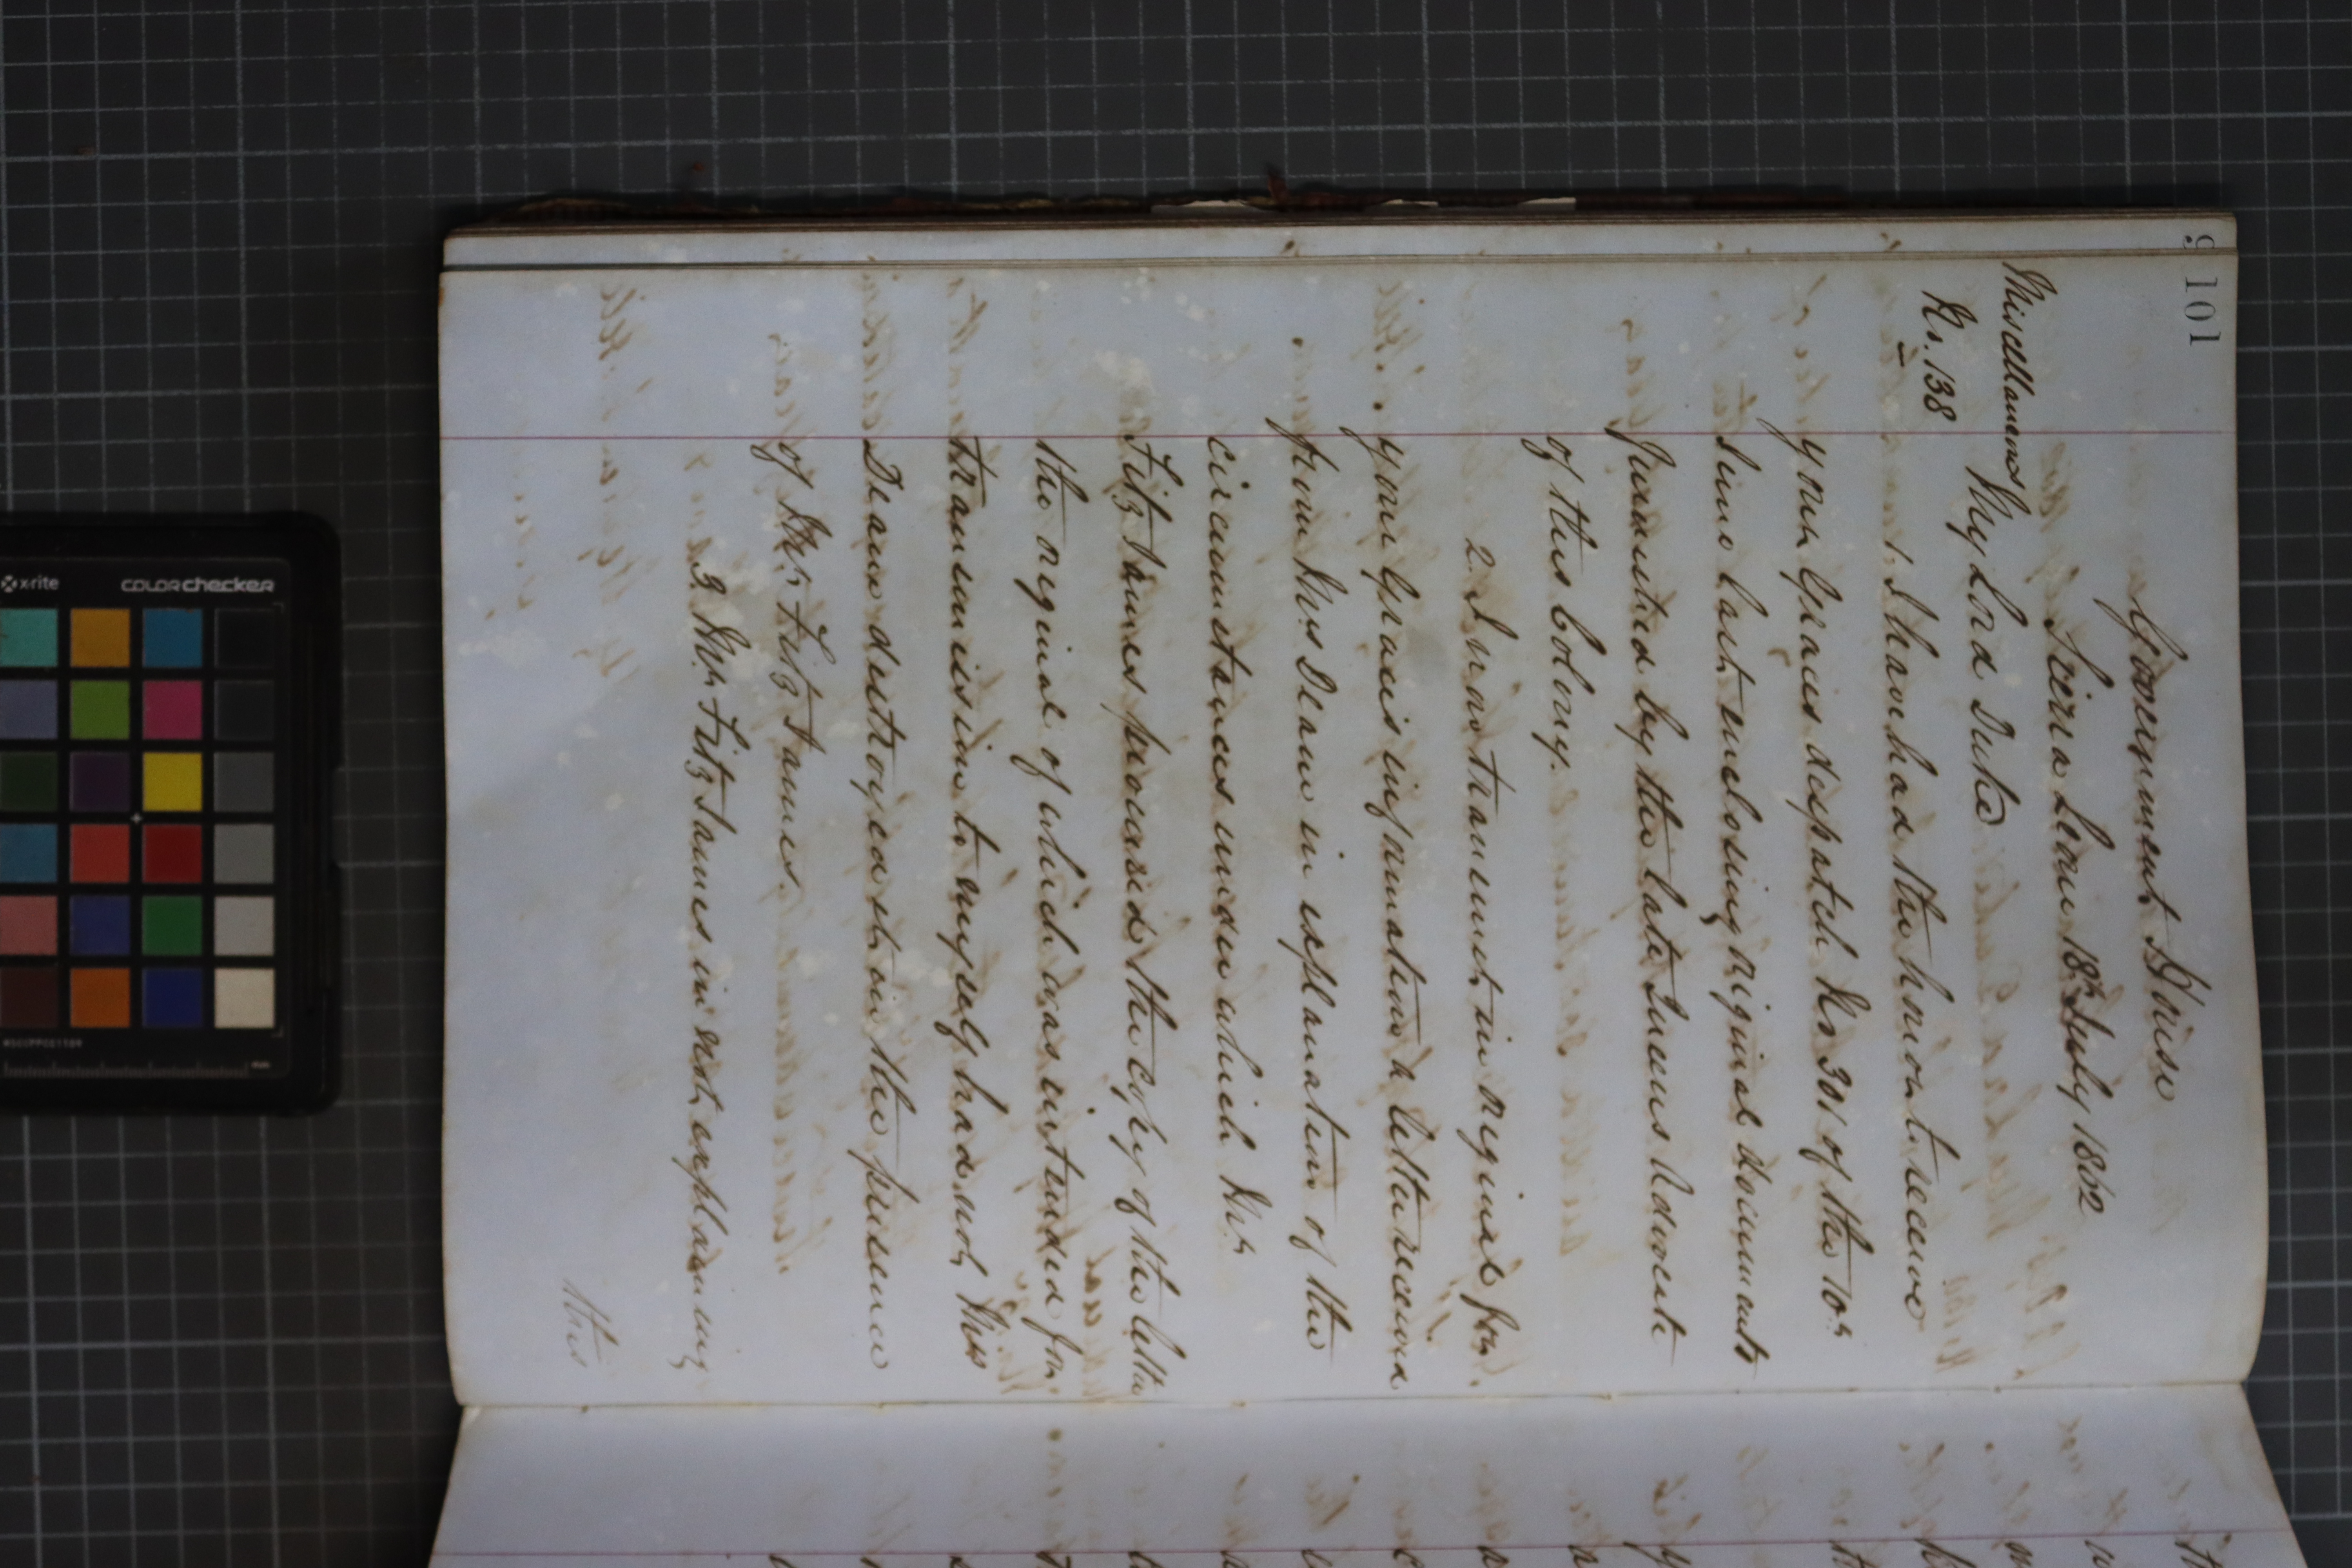 101
Government House
Sierra Leone 18th July 1862
Miscellaneous
No. 138
My Lord Duke
1. I have had the honor to receive
your Graces despatch No 301 of the 10th
June last enclosing original documents
furnished by the late Queens Advocate
of this Colony.
2. I now transmit in original for
your Graces information a letter received
from Mrs Deane in explanation of the
circumstances under which Mr
Fitz James procured the copy of the letter
the original of which was intended for
transmission to myself had not Mrs
Deane destroyed it in the presence
of Mr Fitz James.
3. Mr Fitz James in not explaining
this
x-rite
colorchecker